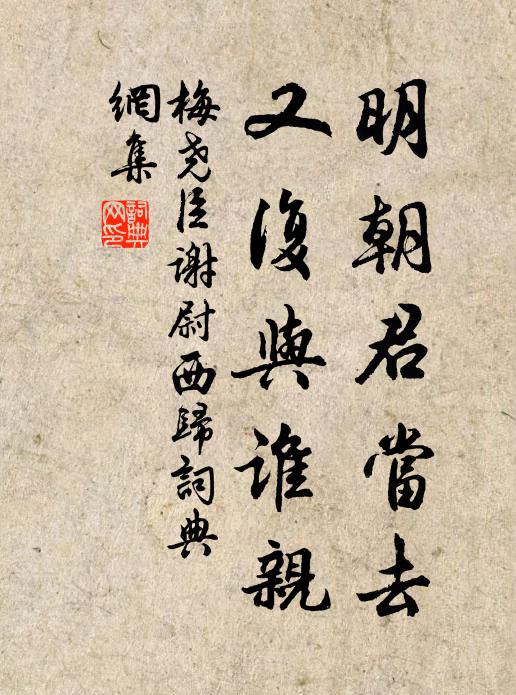 明朝君當去
又復與誰親
梅尧臣謝尉西歸詞典
網集
詞典
网印